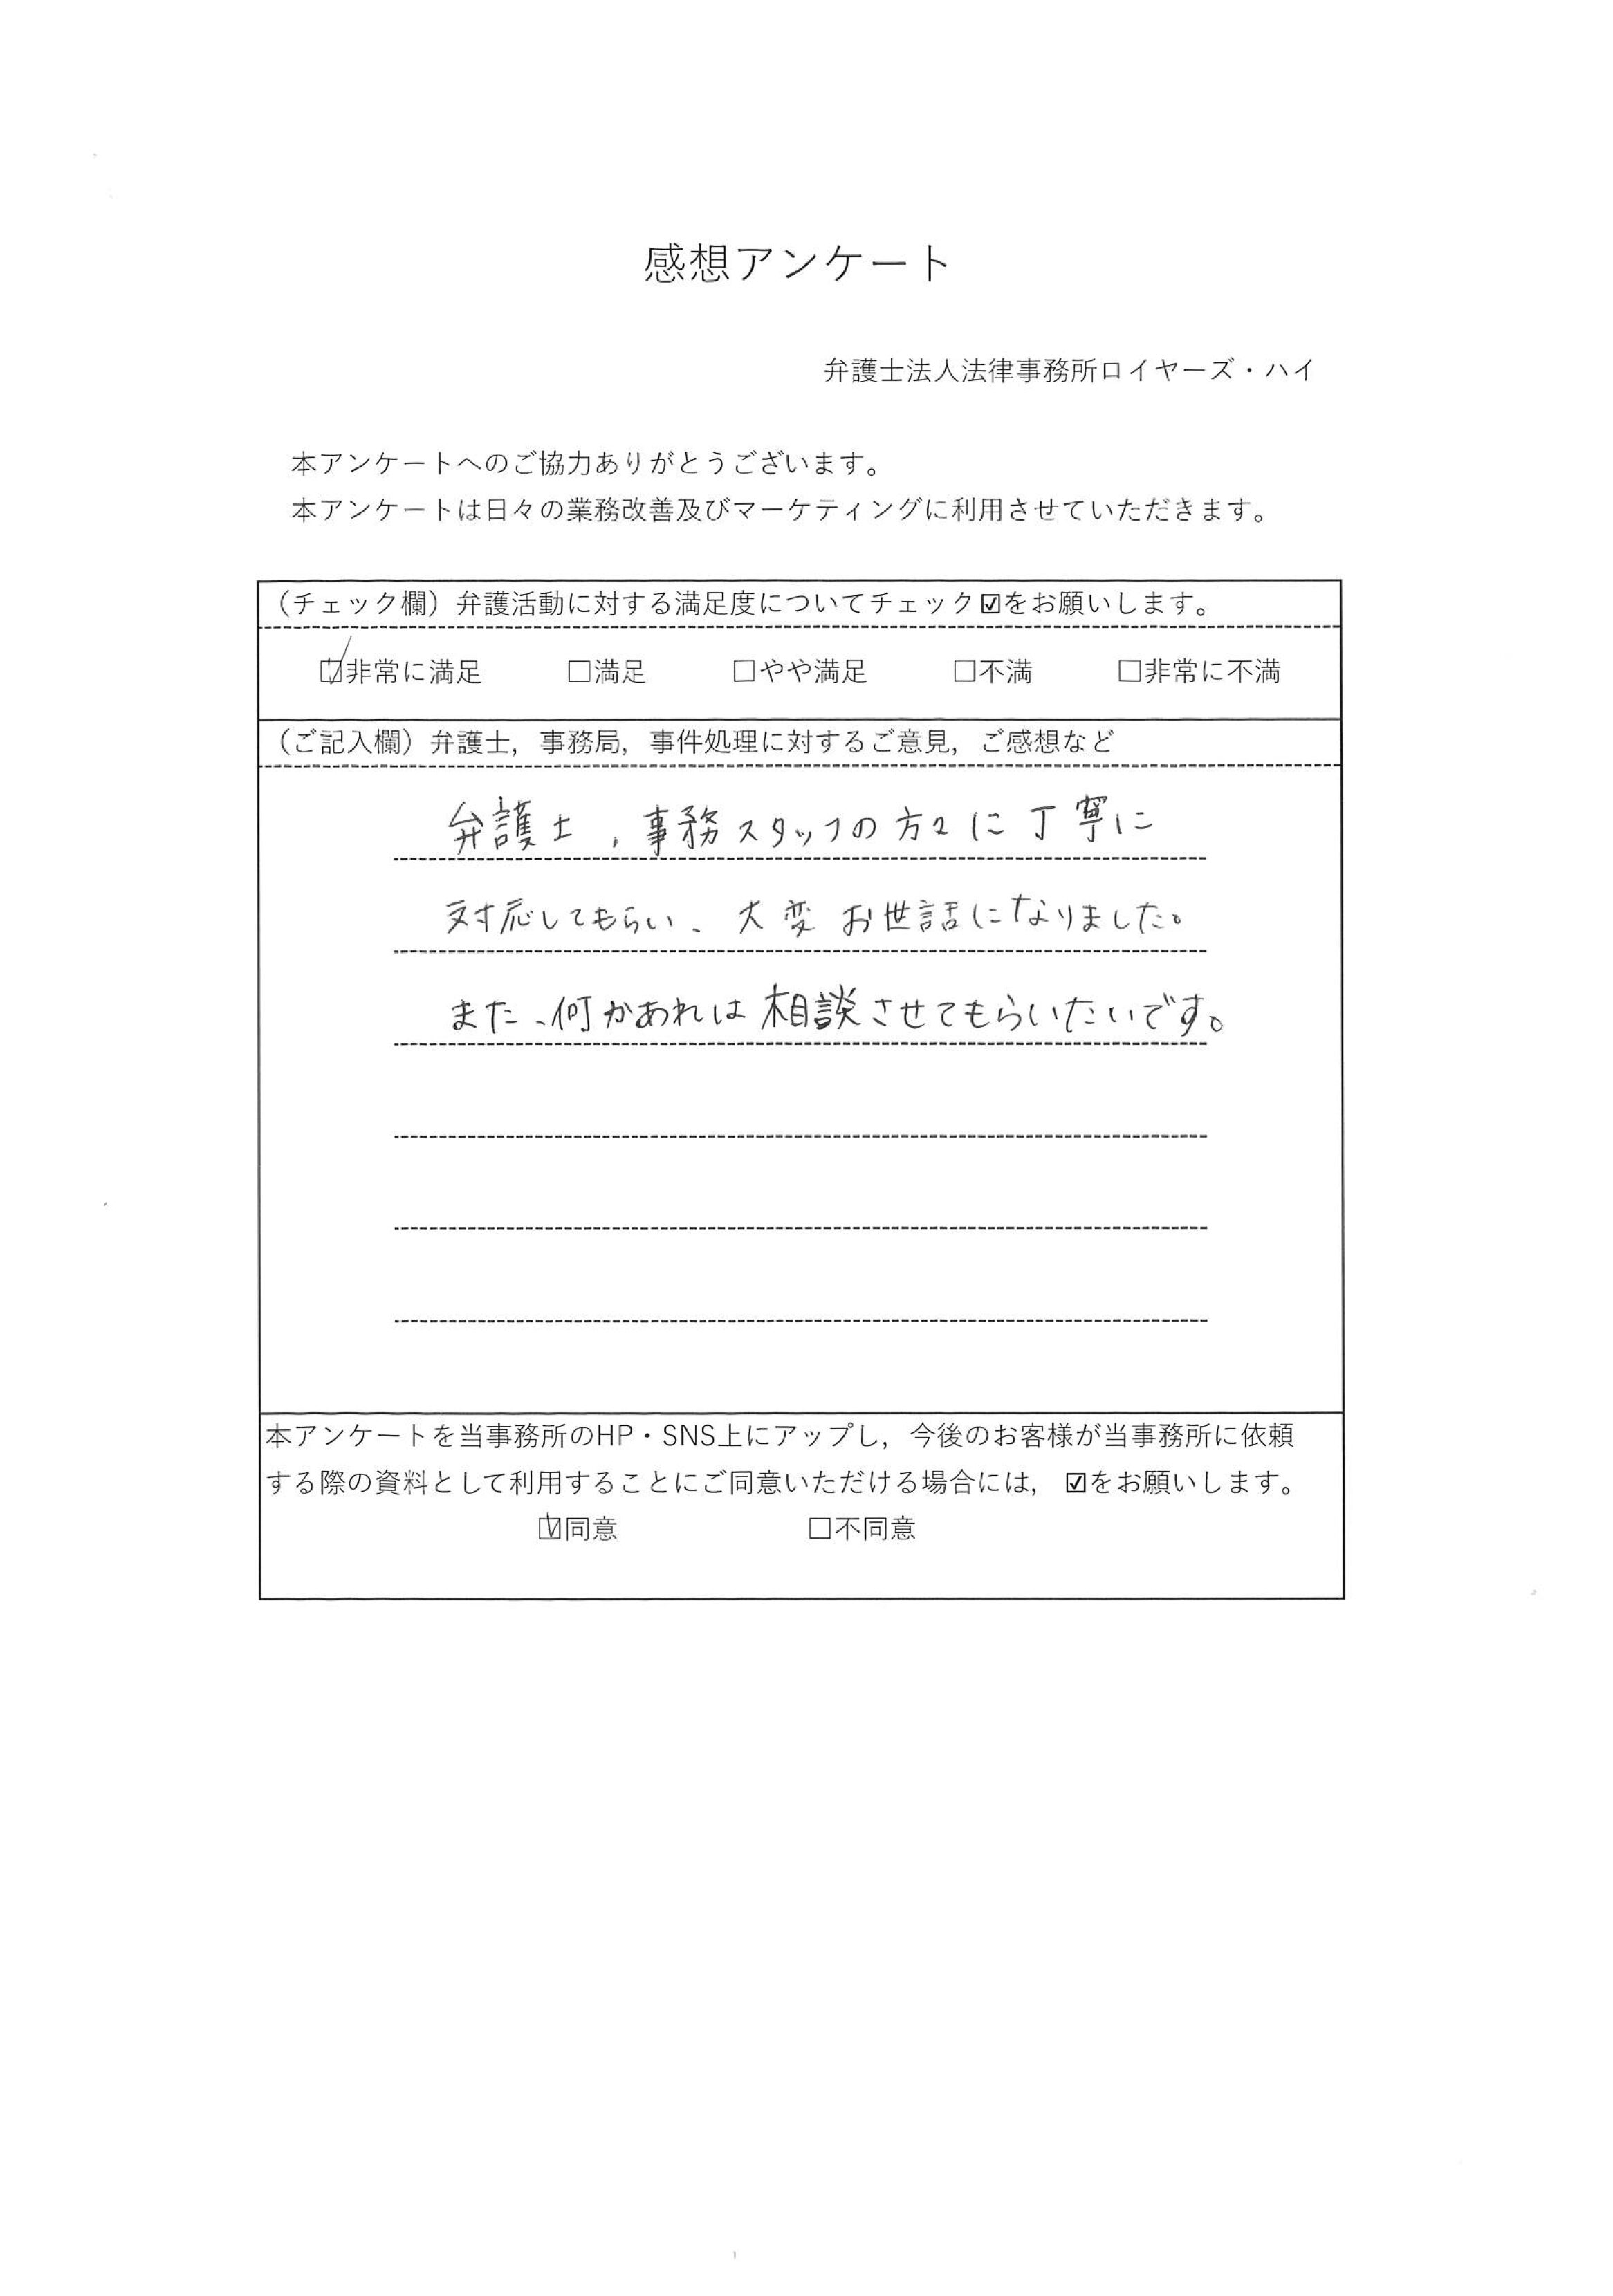 感想アンケート
弁護士法人法律事務所ロイヤーズ・ハイ
本アンケートへのご協力ありがとうございます。
本アンケートは日々の業務改善及びマーケティングに利用させていただきます。
（チェック欄）弁護活動に対する満足度についてチェック☑をお願いします。
☑非常に満足 □満足 □やや満足 □不満 □非常に不満
（ご記入欄）弁護士，事務局，事件処理に対するご意見，ご感想など
弁護士，事務スタッフの方々に丁寧に
対応してもらい、大変お世話になりました。
また、何かあれは相談させてもらいたいです。
本アンケートを当事務所のHP・SNS上にアップし，今後のお客様が当事務所に依頼
する際の資料として利用することにご同意いただける場合には，☑をお願いします。
☑同意 □不同意